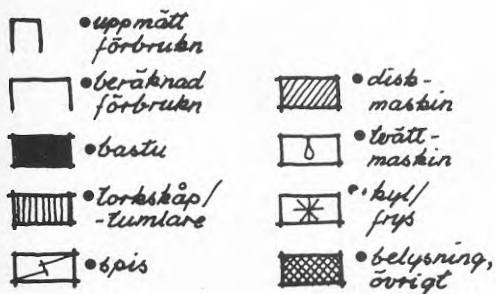 • uppmätt
förbrukn
• beräknad
förbrukn
• bastu
• torkskåp/
-tumlare
• spis
• disk-
maskin
• tvätt-
maskin
• kyl/
frys
• belysning,
övrigt